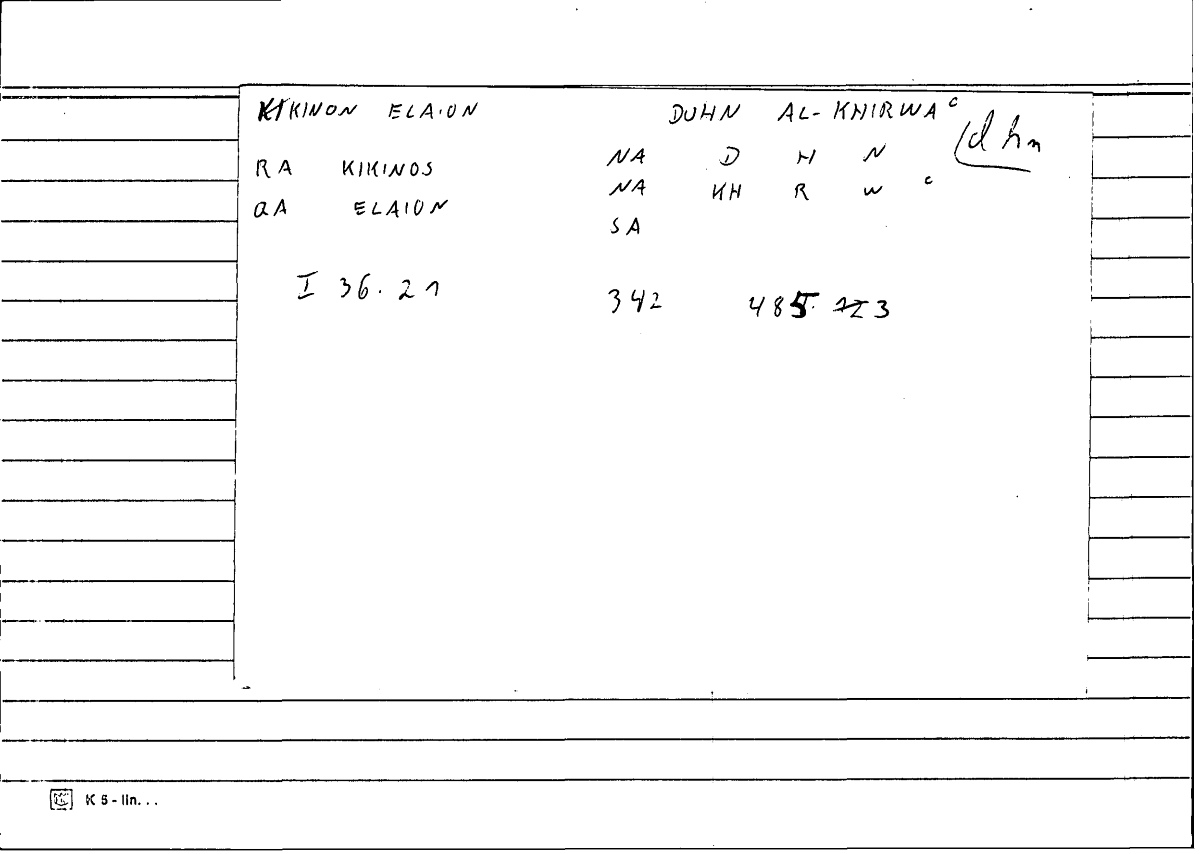 KIKINON ELAION DUHN AL-KHIRWAᶜ
(dhn
RA KIKINOS NA D H N
QA ELAION NA KH R W ᶜ
SA
I 36.21 342 485. 3
K 5 - lin. . .